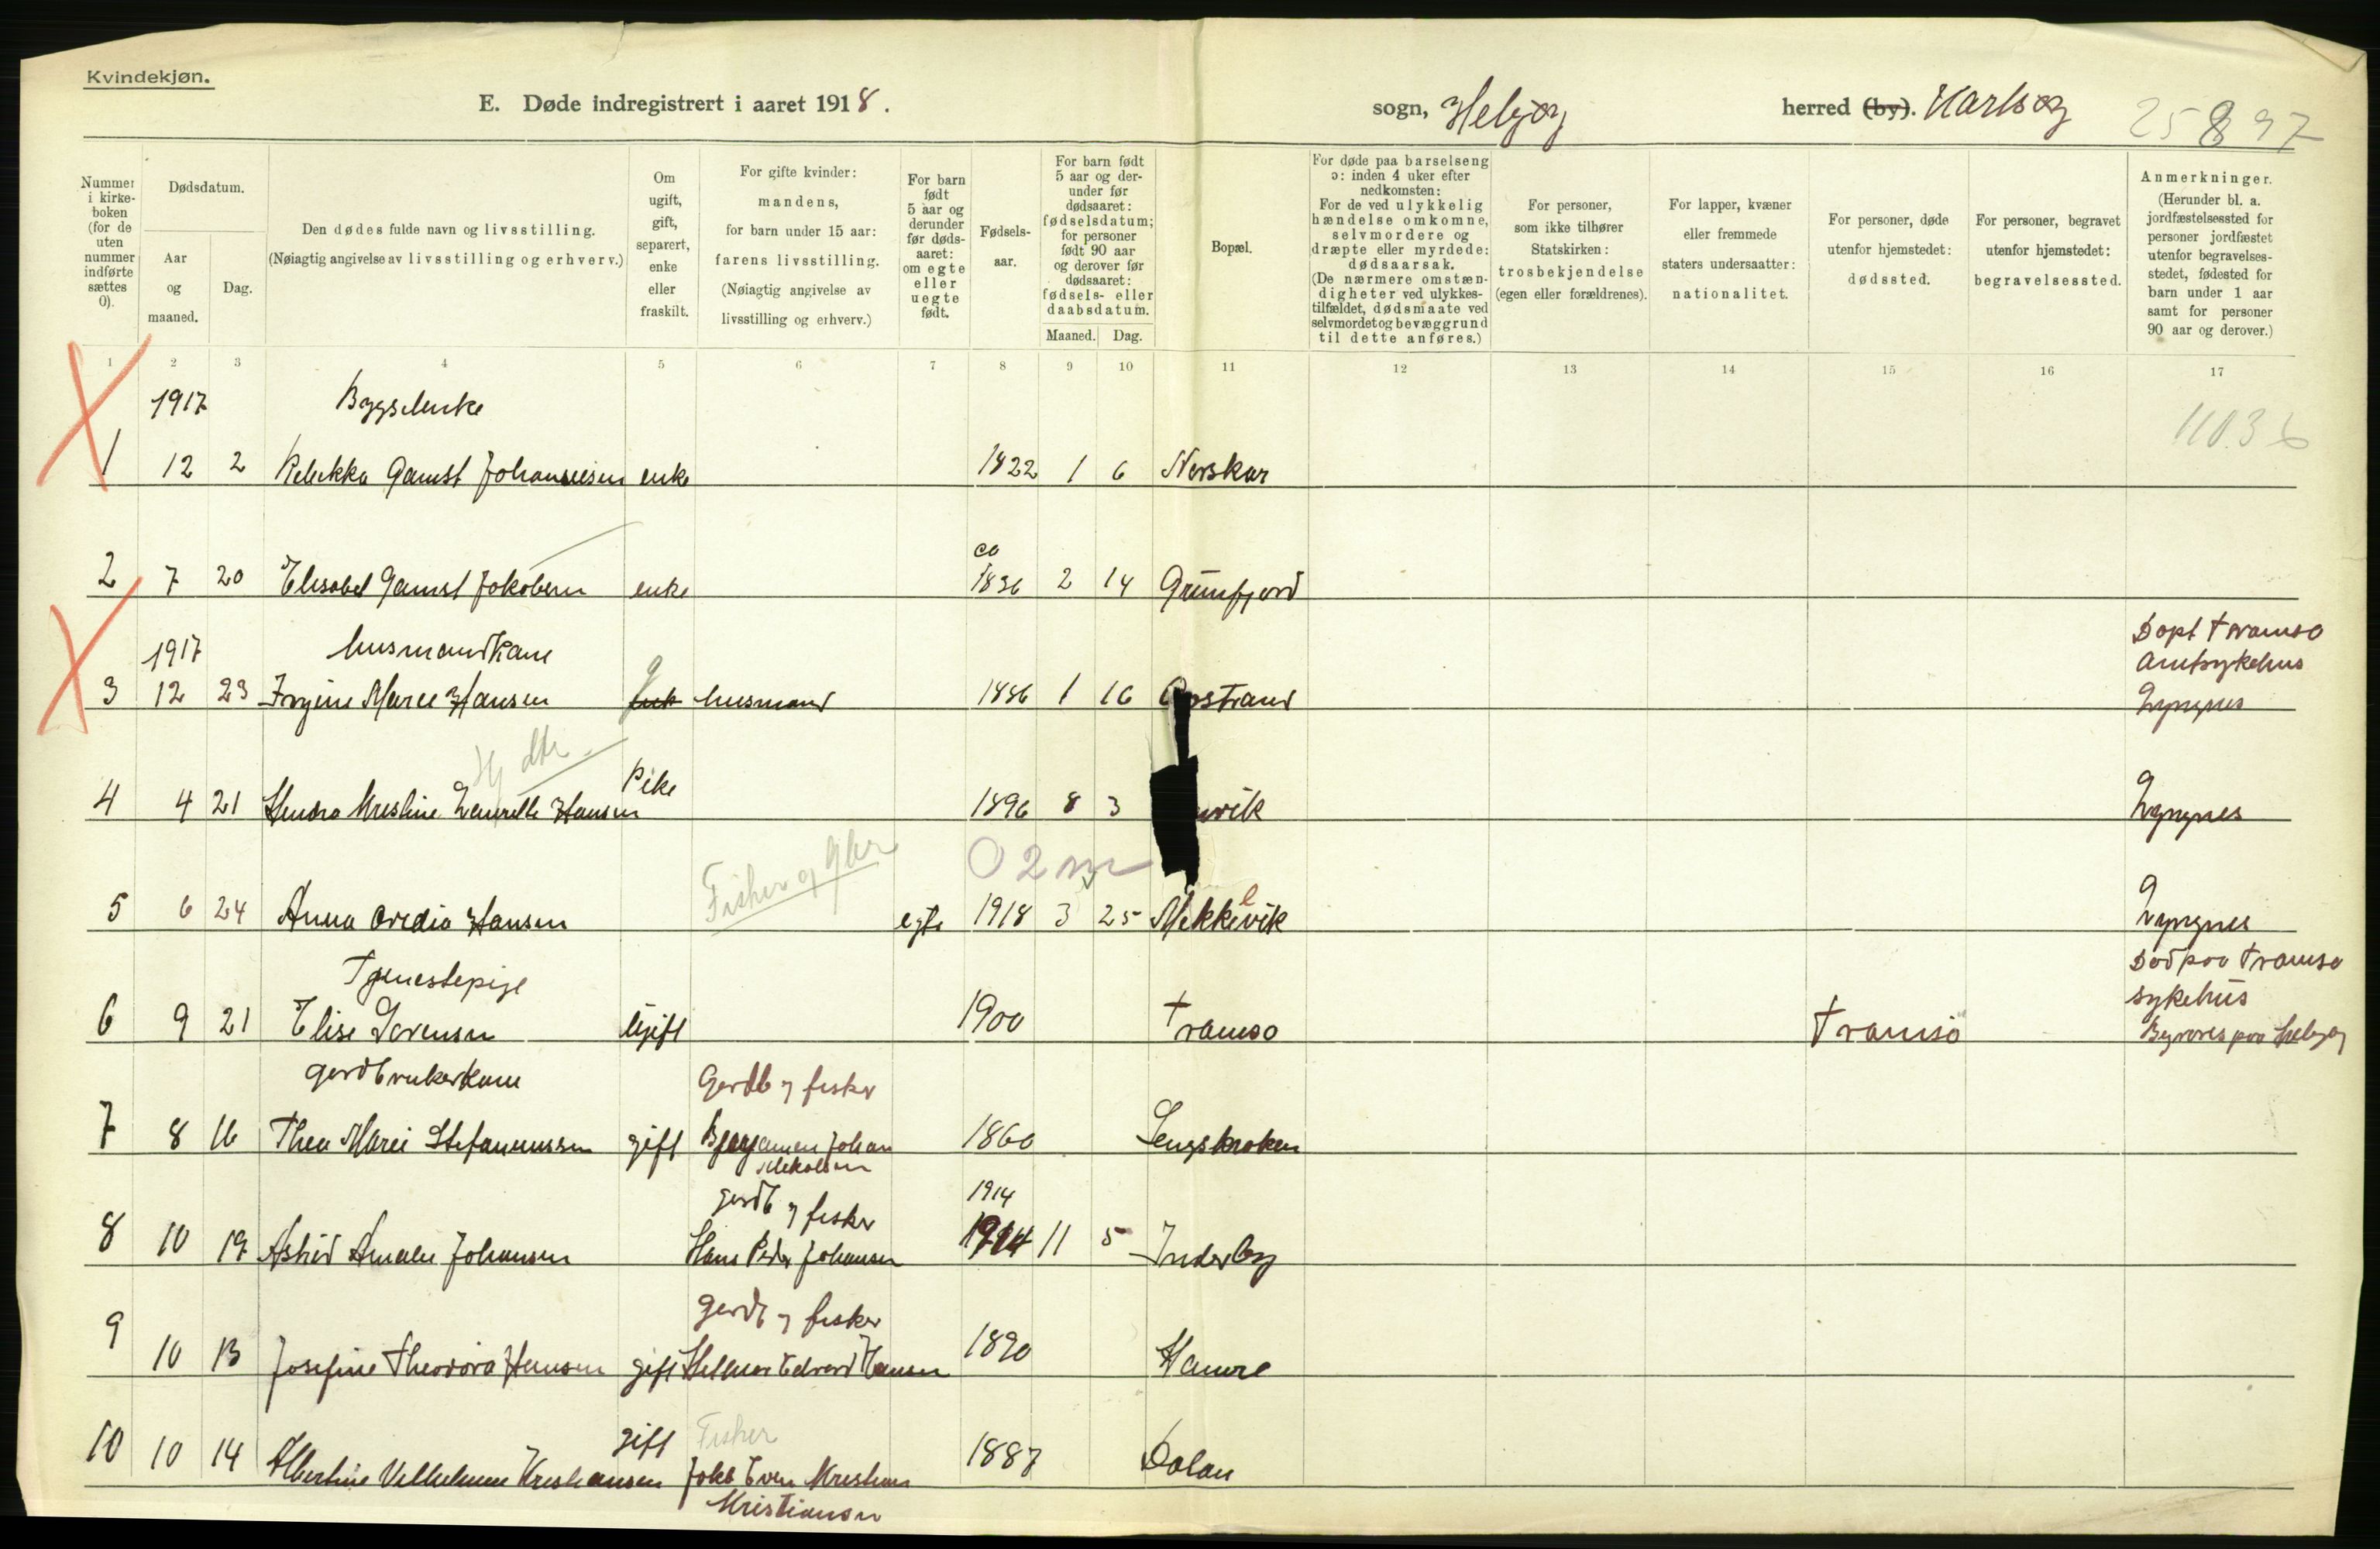 Kvindekjøn.
E. Døde indregistrert i aaret 1918.
sogn, Helgøy
herred (by). Karlsøy
25897
Nummer i kirkeboken (for de uten nummer indførte sættes 0).
Dødsdatum.
Aar og maaned.
Dag.
Den dødes fulde navn og livsstilling.
(Nøiagtig angivelse av livsstilling og erhverv.)
Om ugift, gift, separert, enke eller fraskilt.
For gifte kvinder: mandens, for barn under 15 aar: farens livsstilling. (Nøiagtig angivelse av livsstilling og erhverv.)
For barn født 5 aar og derunder før dødsaaret: om egte eller uegte født.
Fødselsaar.
For barn født 5 aar og derunder før dødsaaret: fødselsdatum; for personer født 90 aar og derover før dødsaaret: fødsels- eller daabsdatum.
Maaned. Dag.
Bopæl.
For døde paa barselseng ɔ: inden 4 uker efter nedkomsten: For de ved ulykkelig hændelse omkomne, selvmordere og dræpte eller myrdede: dødsaarsak. (De nærmere omstændigheter ved ulykkestilfældet, dødsmaate ved selvmordet og bevæggrund til dette anføres.)
For personer, som ikke tilhører Statskirken: trosbekjendelse (egen eller forældrenes).
For lapper, kvæner eller fremmede staters undersaatter: nationalitet.
For personer, døde utenfor hjemstedet: dødssted.
For personer, begravet utenfor hjemstedet: begravelsessted.
Anmerkninger. (Herunder bl. a. jordfæstelsessted for personer jordfæstet utenfor begravelsesstedet, fødested for barn under 1 aar samt for personer 90 aar og derover.)
1 2 3 4 5 6 7 8 9 10 11 12 13 14 15 16 17
1917 Bygselenke
1103 6
1 12 2 Rebekka Gamst Johannesen enke 1822 1 6 Norskar
ca
2 7 20 Elisabet Gamst Jakobsen enke 1836 2 14 Grunfjord
1917 husmandkone
3 12 23 Jrgine Marie Hansen g husmand 1886 1 16
Døpt Tromsø
Amtsykehus
Lyngnes
Pike
4 4 21 Kristine Hansen 1896 8 3
Lyngnes
Fisker og
0 2 m
5 6 24 Anna Ovedia Hansen egte 1918 3 25 Mekkevik
Lyngnes
Tjenestepige
6 9 21 Elise Sørensen Ugift 1900 Tromsø Tromsø
Død paa Tromsø
sykehus
Begraves paa Helgøy
gardbrukerkone Gardb og fisker
7 8 16 Thea Marie Stefanussen gift Johan 1860 Lengskroken
gardb og fisker 1914
8 10 19 Astrid Amalie Johansen Hans Peder Johansen 1914 11 5 Inderby
gardb og fisker
9 10 13 Josefine Theodora Hansen gift Helmer Edvard Hansen 1890 Hamre
gift Fisker
10 10 14 Albertine Vilhelmine Kristiansen Even Kristian 1887 Dalan
Kristiansen